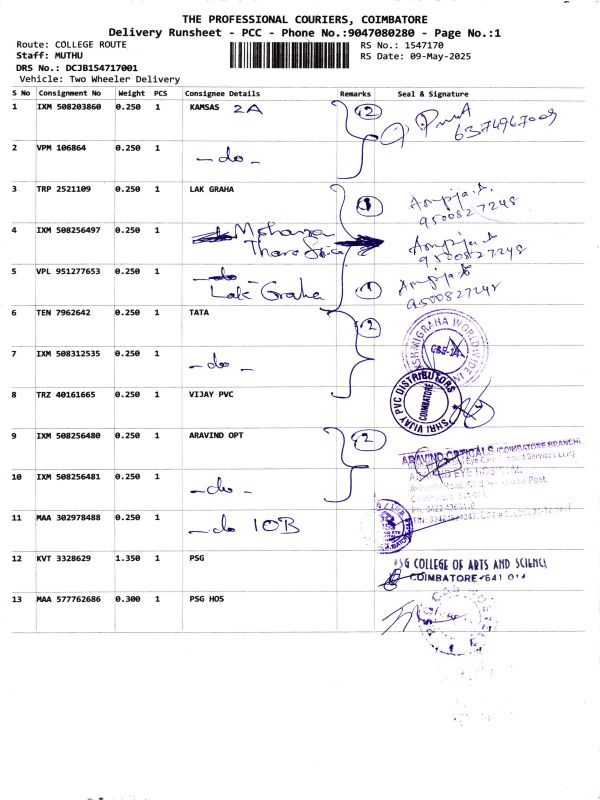 THE PROFESSIONAL COURIERS, COIMBATORE
Delivery Runsheet - PCC - Phone No.:9047080280 - Page No.:1
Route: COLLEGE ROUTE RS No.: 1547170
Staff: MUTHU RS Date: 09-May-2025
DRS No.: DCJB154717001
Vehicle: Two Wheeler Delivery
S No Consignment No Weight PCS Consignee Details Remarks Seal & Signature
1 IXM 508203860 0.250 1 KAMSAS 2A 2 6374967009
2 VPM 106864 0.250 1 -do-
3 TRP 2521109 0.250 1 LAK GRAHA 1 9500827248
4 IXM 508256497 0.250 1 Thare 9500827248
5 VPL 951277653 0.250 1 Lak Graha 1 9500827248
6 TEN 7962642 0.250 1 TATA 2
7 IXM 508312535 0.250 1 -do-
8 TRZ 40161665 0.250 1 VIJAY PVC SHRI VIJAY PVC DISTRIBUTORS COIMBATORE
9 IXM 508256480 0.250 1 ARAVIND OPT 2 ARAVIND OPTICALS (COIMBATORE BRANCH)
10 IXM 508256481 0.250 1 -do-
11 MAA 302978488 0.250 1 -do IOB
12 KVT 3328629 1.350 1 PSG PSG COLLEGE OF ARTS AND SCIENCE
COIMBATORE-641 014
13 MAA 577762686 0.300 1 PSG HOS